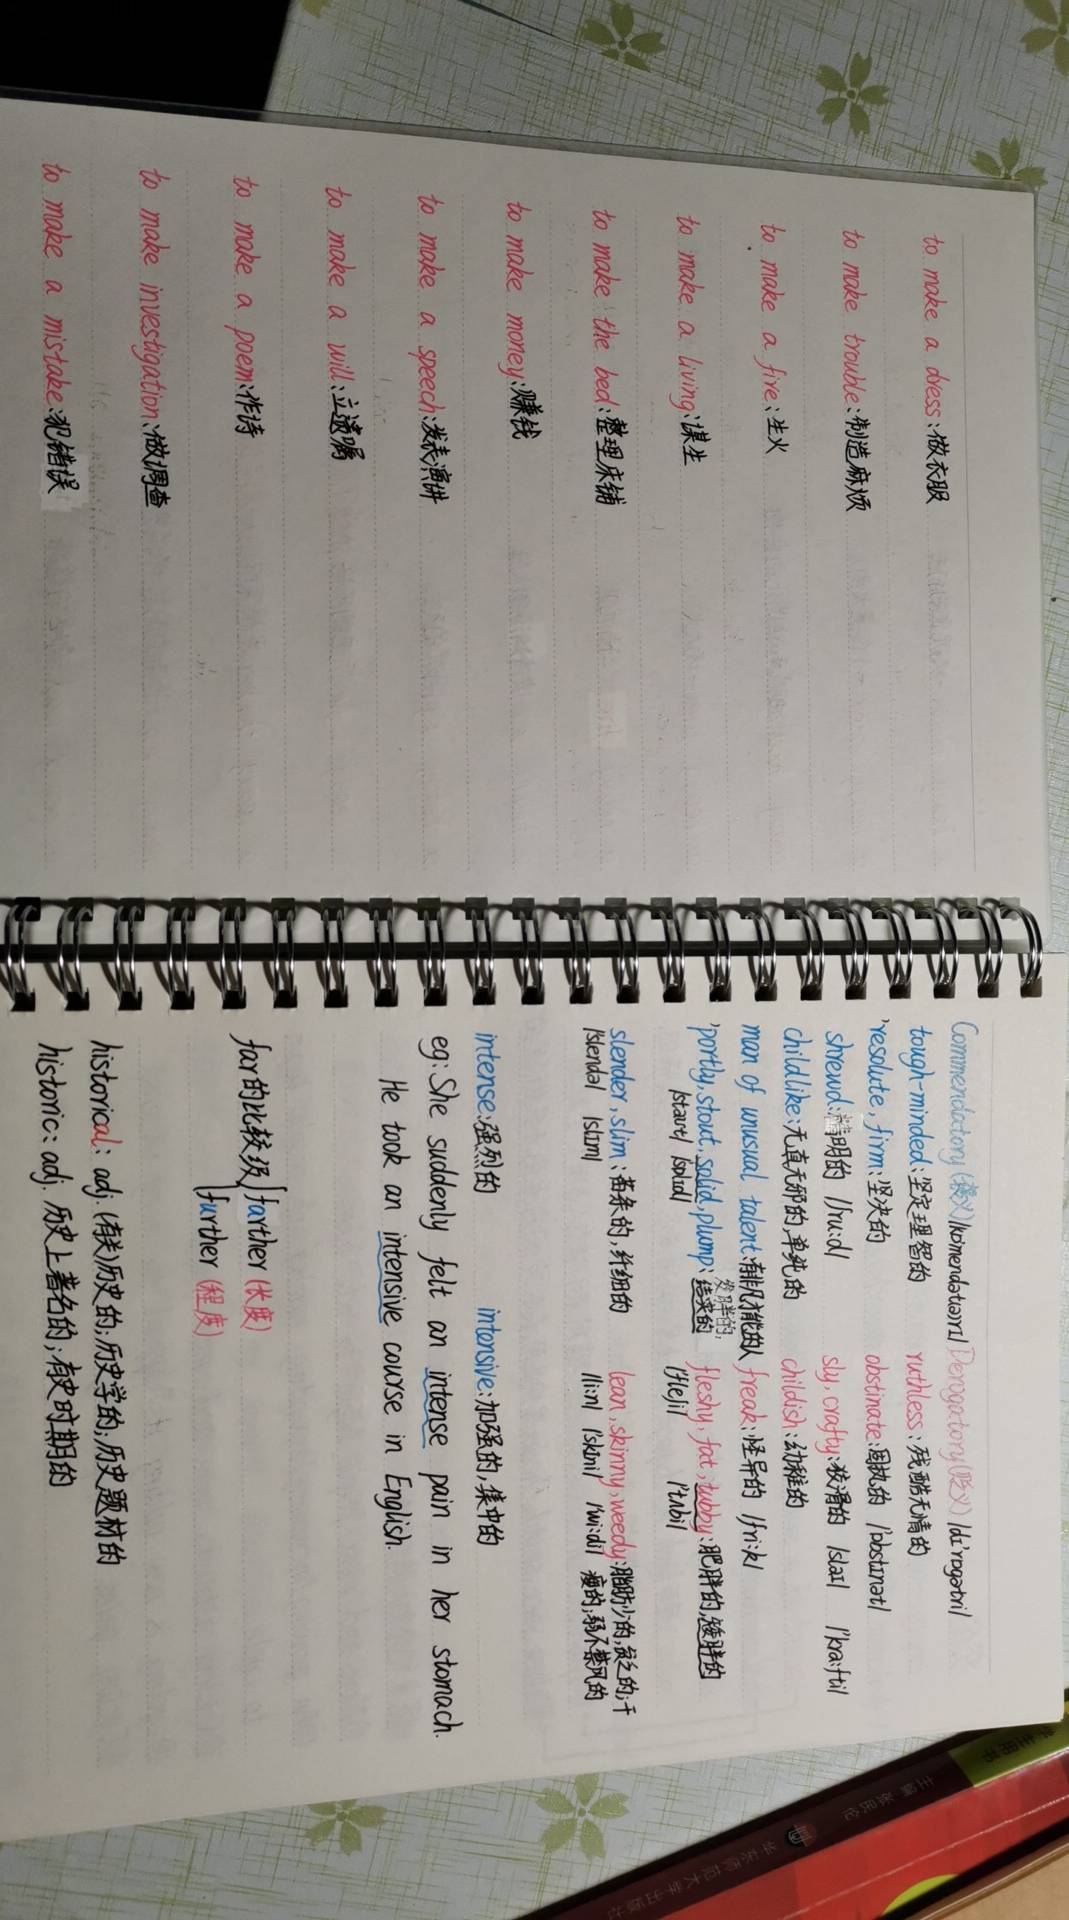 to make a dress:做衣服
to make trouble:制造麻烦
to make a fire:生火
to make a living:谋生
to make the bed:整理床铺
to make money:赚钱
to make a speech:发表演讲
to make a will:立遗嘱
to make a poem:作诗
to make investigation:做调查
to make a mistake:犯错误
Commendatory(褒义)/kəˈmendətərɪ/ Derogatory(贬义) /dɪˈrɒgətri/
tough-minded:坚定理智的 ruthless:残酷无情的
resolute, firm:坚决的 obstinate:固执的 /ˈɒbstɪnət/
shrewd:精明的 /ʃru:d/ sly, crafty:狡滑的 /slaɪ/ /ˈkra:fti/
childlike:无真无邪的,单纯的 childish:幼稚的
man of unusual talent:有非凡才能的人 freak:怪异的 /fri:k/
发胖的,
portly, stout, solid, plump:结实的 fleshy, fat, tubby:肥胖的,矮胖的
/staʊt/ /ˈsɒlɪd/ /ˈfleʃi/ /ˈtʌbi/
slender, slim:苗条的,纤细的 lean, skinny, weedy:脂肪少的,贫乏的;干
/ˈslendə/ /slɪm/ /li:n/ /ˈskɪni/ /ˈwi:di/ 瘦的;弱不禁风的
intense:强烈的 intensive:加强的,集中的
eg: She suddenly felt an intense pain in her stomach.
He took an intensive course in English.
far的比较级 farther (长度)
further (程度)
historical: adj. (有关)历史的;历史学的;历史题材的
historic: adj. 历史上著名的;有史时期的
主编 张民伦
华东师范大学出版社